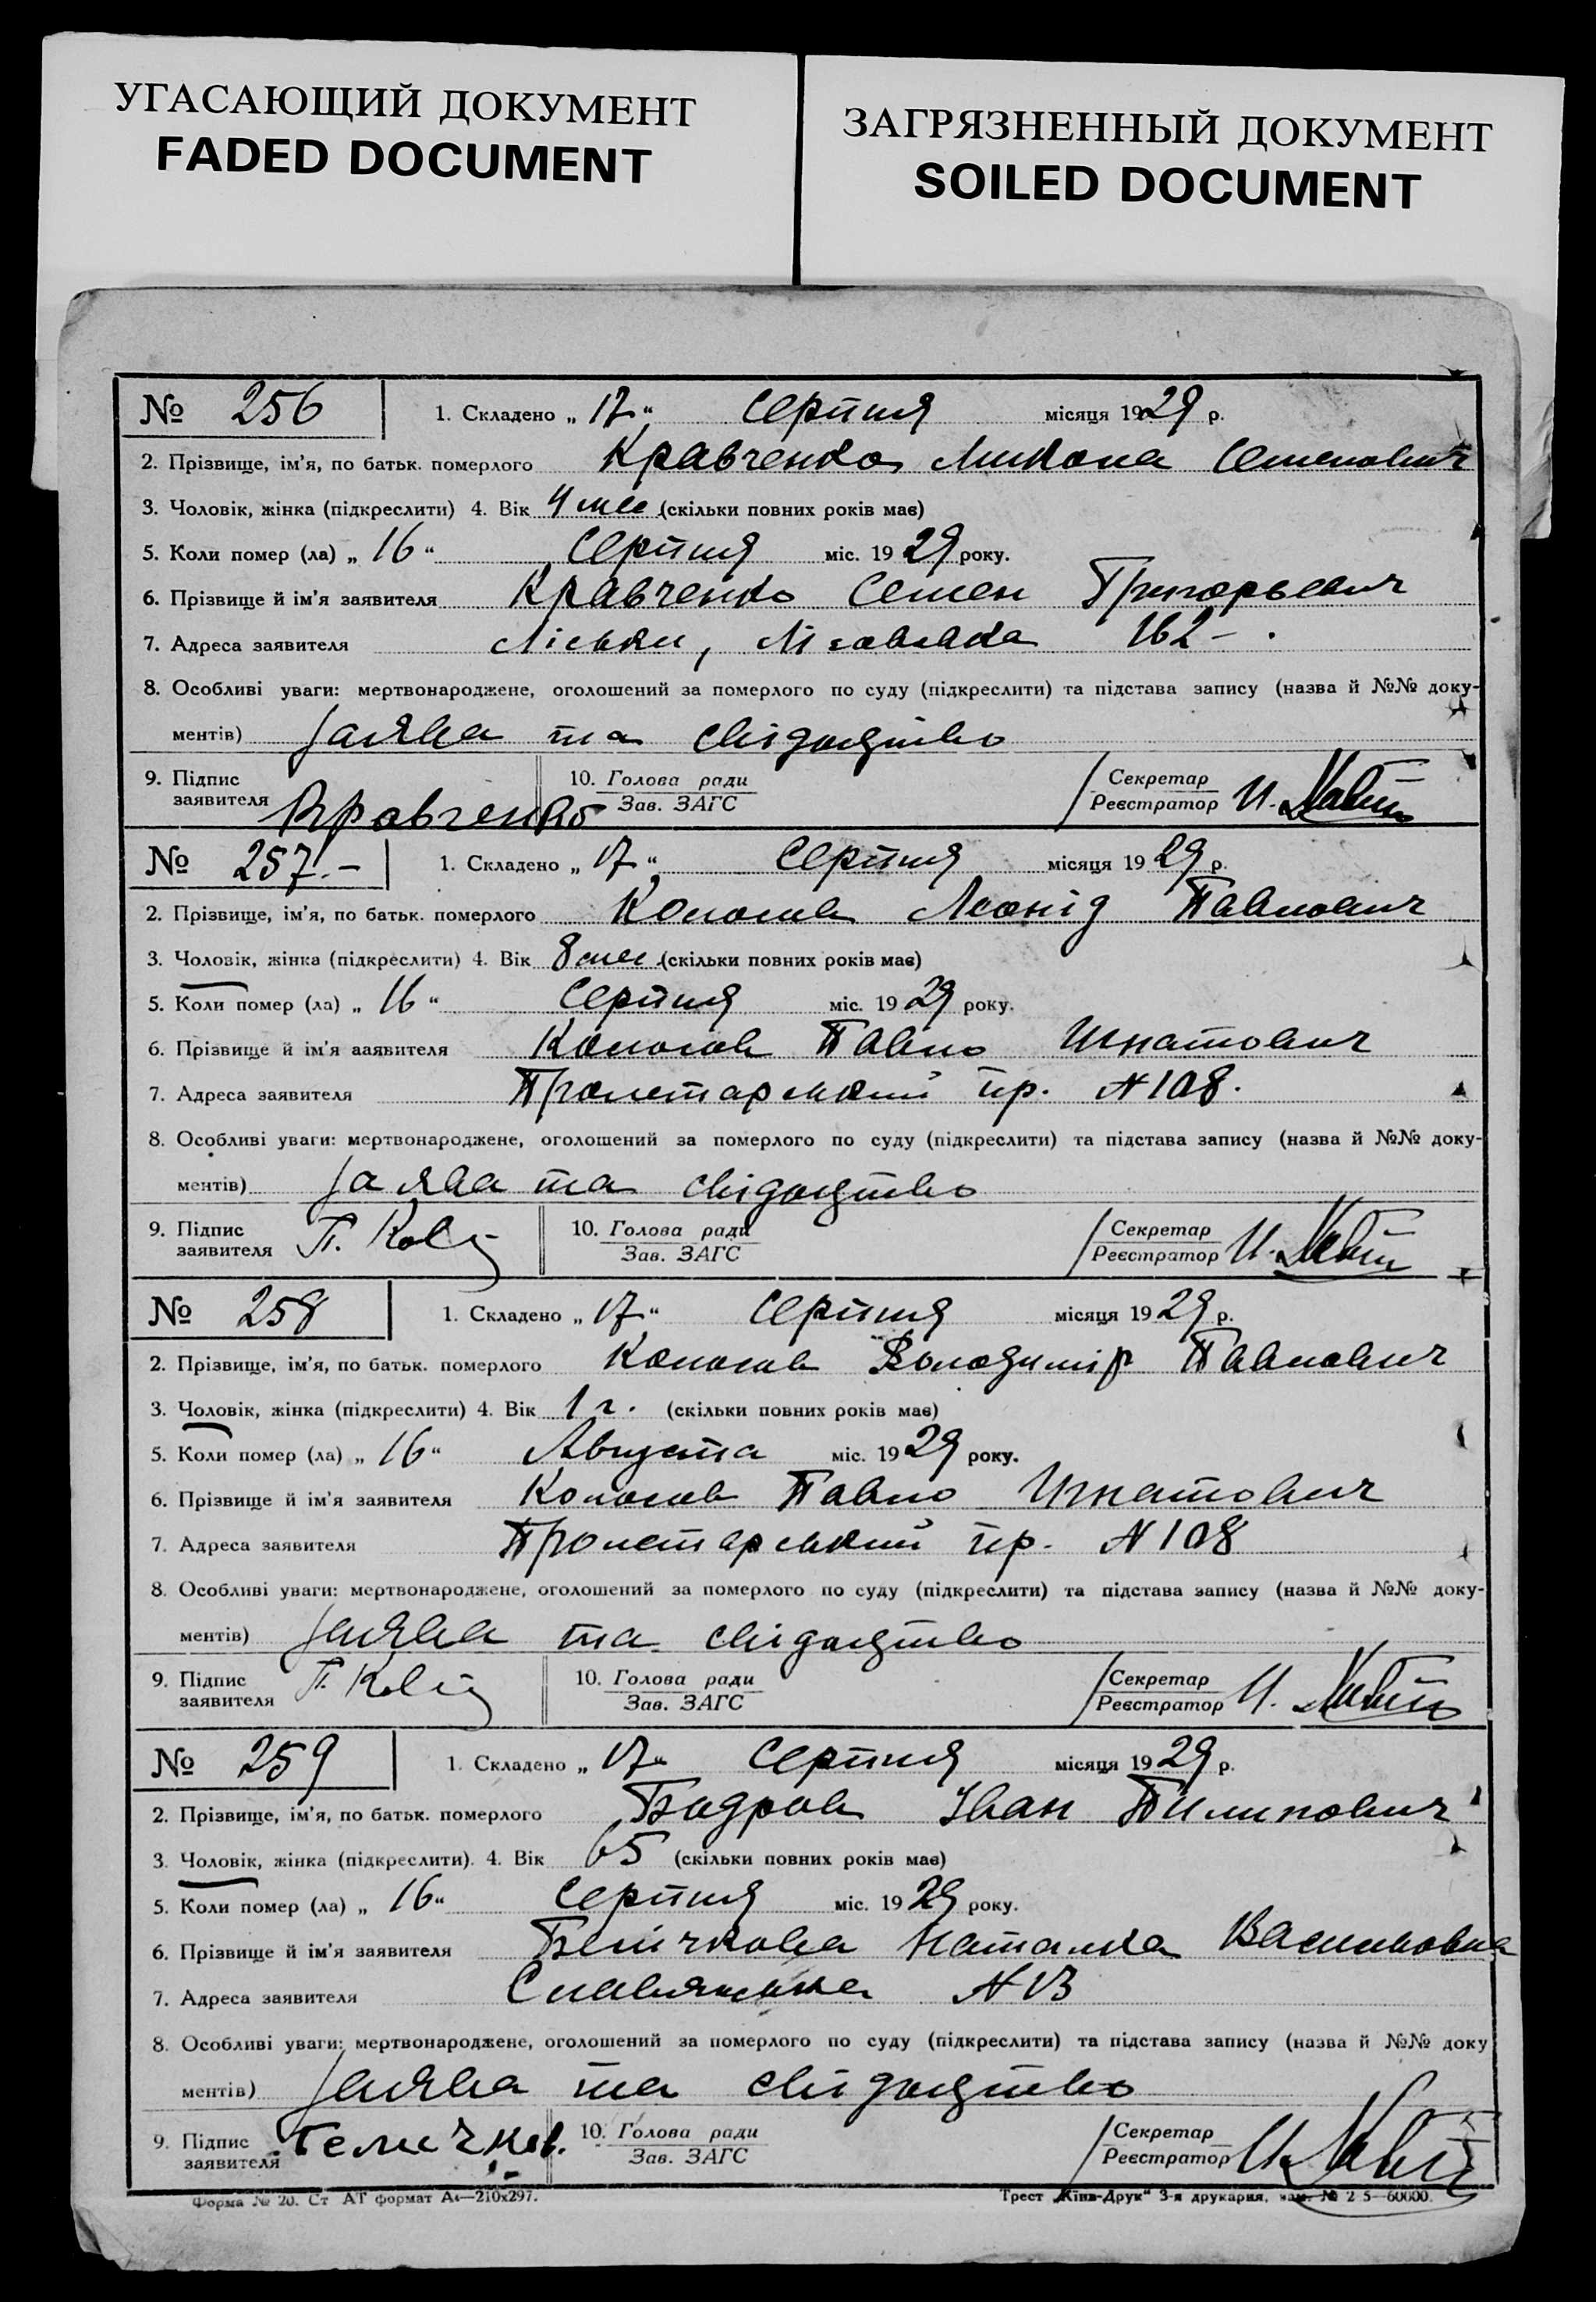 УГАСАЮЩИЙ ДОКУМЕНТ
FADED DOCUMENT
ЗАГРЯЗНЕННЫЙ ДОКУМЕНТ
SOILED DOCUMENT
№ 256 1. Складено „ 17 “ серпня місяця 1929 р.
2. Прізвище, ім'я, по батьк. померлого Кравченко Микола Семенович
3. Чоловік, жінка (підкреслити) 4. Вік 4 мес (скільки повних років має)
5. Коли помер (ла) „ 16 “ серпня міс. 1929 року.
6. Прізвище й ім'я заявителя Кравченко Семен Григорьевич
7. Адреса заявителя Ліски, 162 -.
8. Особливі уваги: мертвонароджене, оголошений за померлого по суду (підкреслити) та підстава запису (назва й №№ доку-
ментів) Заява та свідоцтво
9. Підпис заявителя Кравченко 10. Голова ради Зав. ЗАГС Секретар Реєстратор И.
№ 257.- 1. Складено „ 17 “ серпня місяця 1929 р.
2. Прізвище, ім'я, по батьк. померлого Колосов Леонід Павлович
3. Чоловік, жінка (підкреслити) 4. Вік 8 мес (скільки повних років має)
5. Коли помер (ла) „ 16 “ серпня міс. 1929 року.
6. Прізвище й ім'я ааявителя Колосов Павло Игнатович
7. Адреса заявителя Пролетарський пр. N 108.
8. Особливі уваги: мертвонароджене, оголошений за померлого по суду (підкреслити) та підстава запису (назва й №№ доку-
ментів) Заява та свідоцтво
9. Підпис заявителя П. 10. Голова ради Зав. ЗАГС Секретар Реєстратор И.
№ 258 1. Складено „ 17 “ серпня місяця 1929 р.
2. Прізвище, ім'я, по батьк. померлого Колосов Володимір Павлович
3. Чоловік, жінка (підкреслити) 4. Вік 1 г. (скільки повних років має)
5. Коли помер (ла) „ 16 “ Августа міс. 1929 року.
6. Прізвище й ім'я заявителя Колосов Павло Игнатович
7. Адреса заявителя Пролетарський пр. N 108
8. Особливі уваги: мертвонароджене, оголошений за померлого по суду (підкреслити) та підстава запису (назва й №№ доку-
ментів) Заява та свідоцтво
9. Підпис заявителя П. 10. Голова ради Зав. ЗАГС Секретар Реєстратор И.
№ 259 1. Складено „ 17 “ серпня місяця 1929 р.
2. Прізвище, ім'я, по батьк. померлого Бодров Іван Пилипович
3. Чоловік, жінка (підкреслити). 4. Вік 65 (скільки повних років має)
5. Коли помер (ла) „ 16 “ серпня міс. 1929 року.
6. Прізвище й ім'я заявителя Белічкова Наталка Василовна
7. Адреса заявителя Славянська N 13
8. Особливі уваги: мертвонароджене, оголошений за померлого по суду (підкреслити) та підстава запису (назва й №№ доку
ментів) Заява та свідоцтво
9. Підпис заявителя 10. Голова ради Зав. ЗАГС Секретар Реєстратор И.
Форма № 20. Ст АТ формат А4—210x297. Трест „Київ-Друк“ 3-я друкарня, зам. № 2 5—60000.